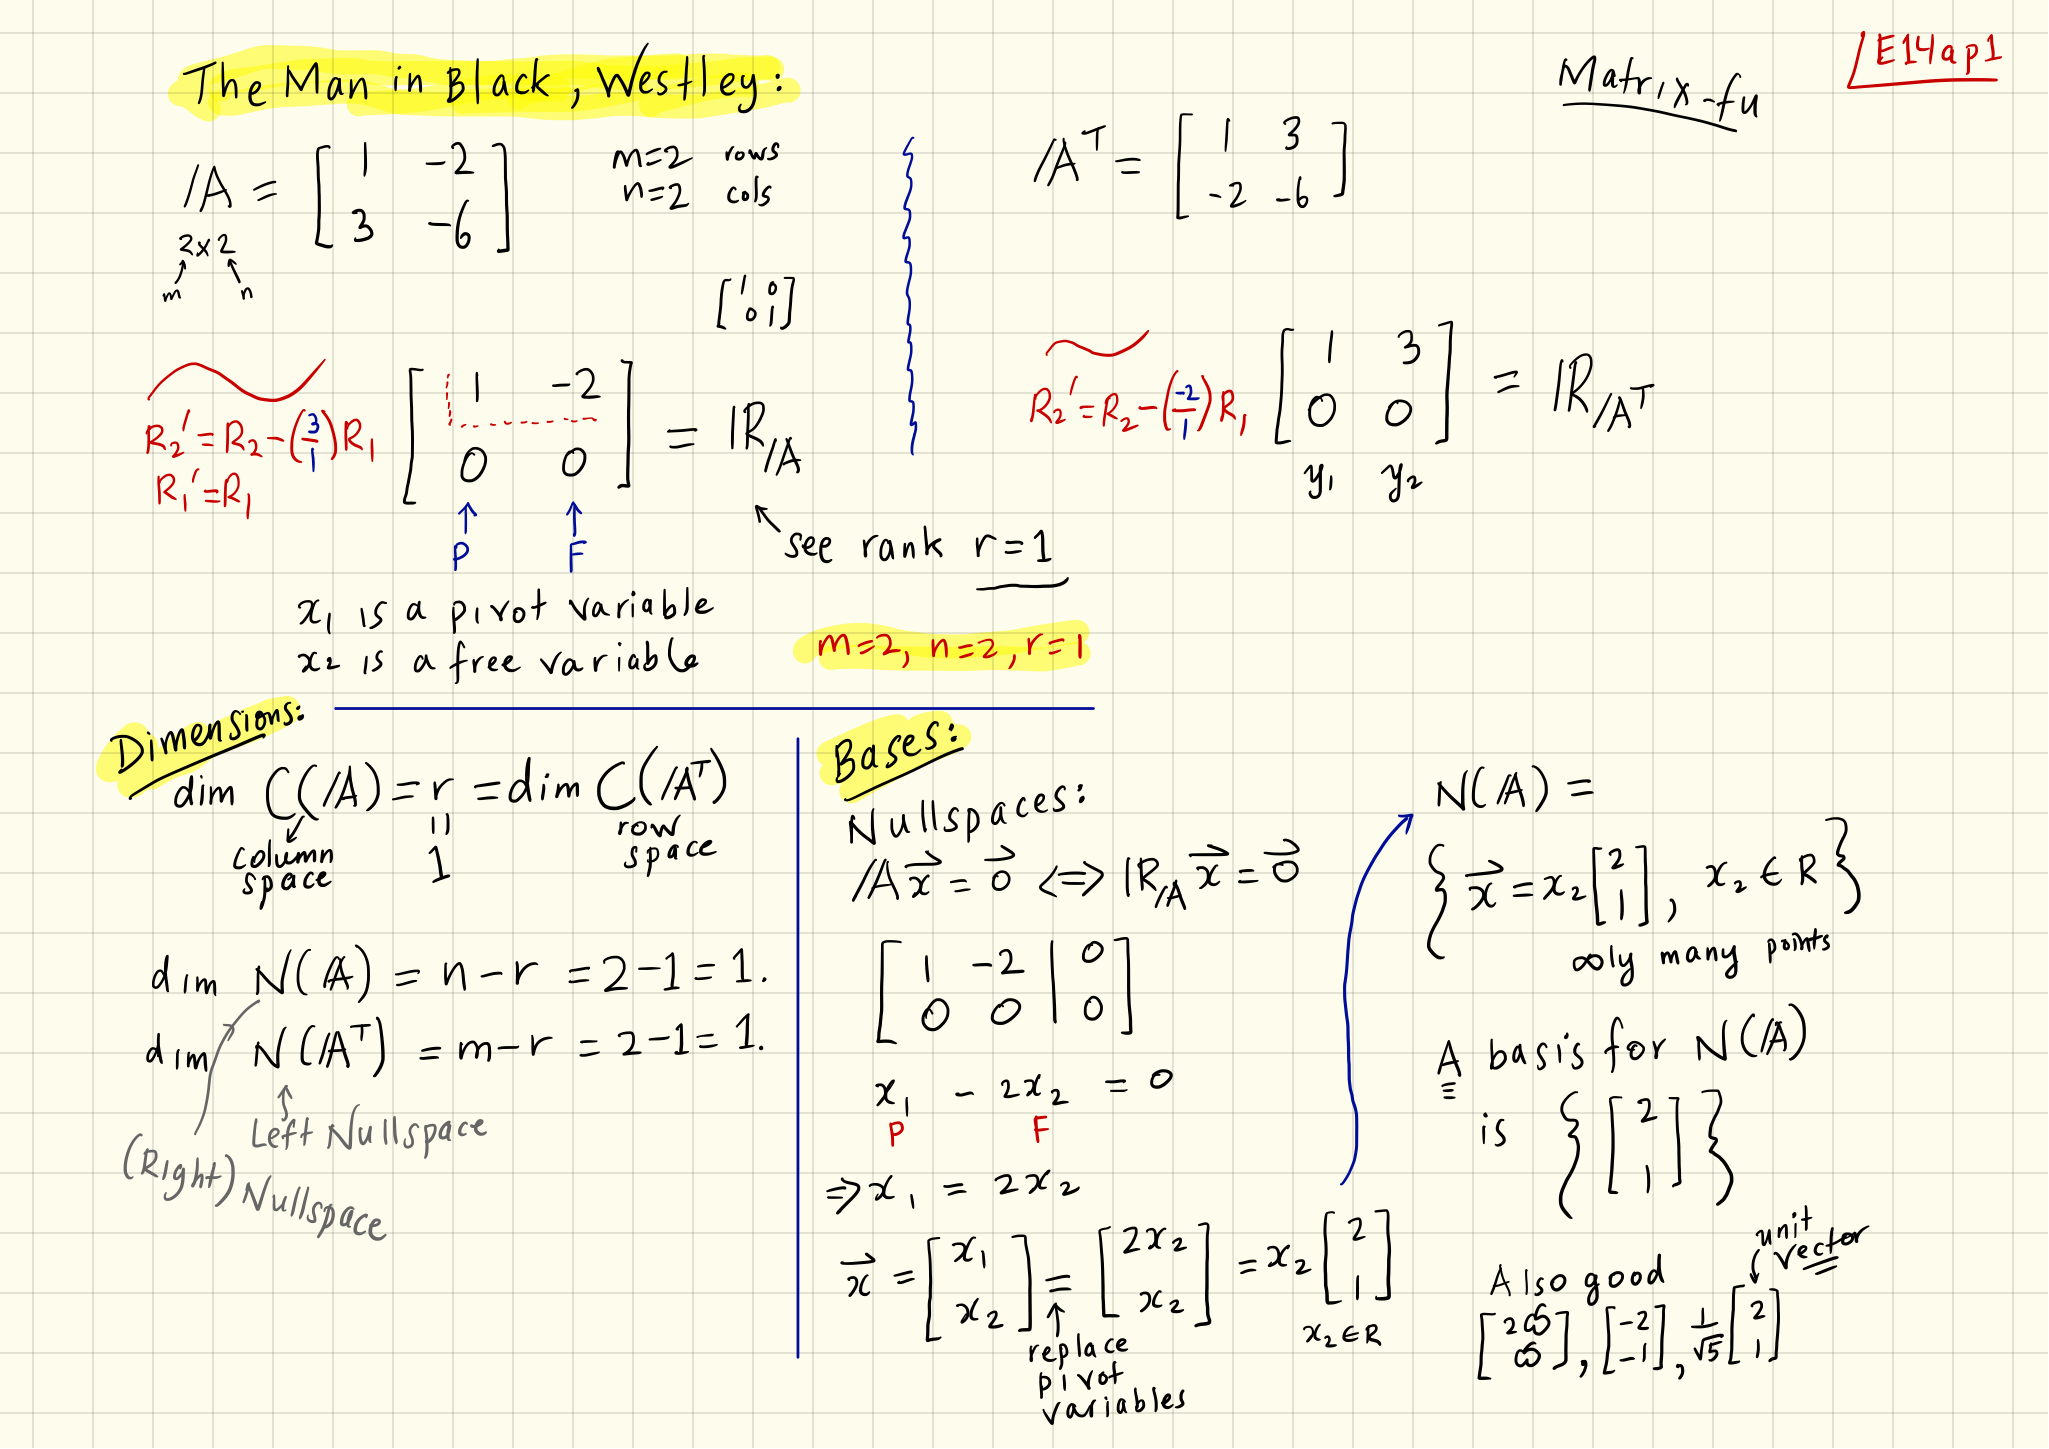 The Man in Black, Westley:
Matrix-fu
E14ap1
A = [ 1 -2
3 -6 ]
2x2
m n
m=2 rows
n=2 cols
[ 1 0
0 1 ]
R2' = R2 - (3/1) R1
R1' = R1
[ 1 -2
0 0 ] = R_A
P F
see rank r=1
x1 is a pivot variable
x2 is a free variable
m=2, n=2, r=1
A^T = [ 1 3
-2 -6 ]
R2' = R2 - (-2/1) R1
[ 1 3
0 0 ] = R_A^T
y1 y2
Dimensions:
dim C(A) = r = dim C(A^T)
column space
||
1
row space
dim N(A) = n-r = 2-1 = 1.
dim N(A^T) = m-r = 2-1 = 1.
Left Nullspace
(Right) Nullspace
Bases:
Nullspaces:
A x⃗ = 0⃗ <=> R_A x⃗ = 0⃗
[ 1 -2 | 0
0 0 | 0 ]
x1 - 2x2 = 0
P F
=> x1 = 2x2
x⃗ = [ x1
x2 ] = [ 2x2
x2 ] = x2 [ 2
1 ]
x2 ∈ R
replace
pivot
variables
N(A) =
{ x⃗ = x2 [ 2
1 ], x2 ∈ R }
∞ly many points
A basis for N(A)
is { [ 2
1 ] }
unit
vector
Also good
[ -2
-1 ], 1/√5 [ 2
1 ]